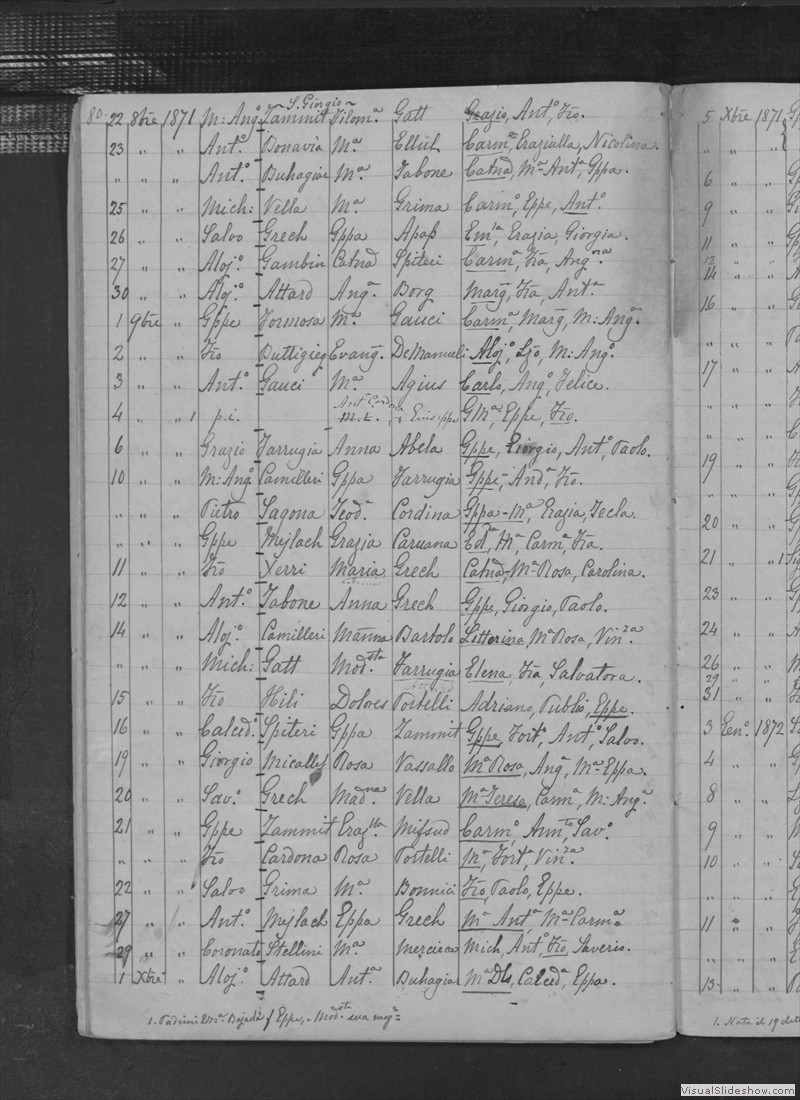 ~ S. Giorgio ~
80. 22 8bre 1871 M: Angº Zammit Filomª Gatt Grazio, Antº, Fco.
23 " " Antº Bonavia Mª Ellul Carmª, Grazialla, Nicolina.
" " " Antº Buhagiar Mª Tabone Catnª, Mª Antª, Gppa.
25 " " Mich: Vella Mª Grima Carmº, Eppe, Antº.
26 " " Salvo Grech Gppa Apap Emla, Grazia, Giorgia.
27 " " Alojº Gambin Catnª Spiteri Carmª, Fca, Angna
30 " " Alojº Attard Angª Borg Marg, Fca, Antª
1 9bre " Gppe Formosa Mª Gauci Carmª, Marg, M: Angª.
2 " " Fco Buttigieg Evang. DeManueli Alojº, Ljo, M: Angº.
3 " " Antº Gauci Mª Agius Carlo, Angº, Felice.
4 " " 1 p.i. GMª, Eppe, Fco.
6 " " Grazio Farrugia Anna Abela Gppe, Giorgio, Antº, Paolo.
10 " " M: Angº Camilleri Gppa Farrugia Gppe, Andª, Fco.
" " Pietro Sagona Teodª Cordina Gppa-Mª, Grazia, Tecla.
" " " Gppe Mejlach Grazia Caruana Edª, Mª, Carmª, Fca.
11 " " Fco Xerri Maria Grech Catnª, Mª Rosa, Carolina.
12 " " Antº Tabone Anna Grech Gppe, Giorgio, Paolo.
14 " " Alojº Camilleri Manna Bartolo Letterina, Mª Rosa, Vinza
" " Mich: Gatt Modsta Farrugia Elena, Fca, Salvatora.
15 " " Fco Hili Dolores Portelli Adriano, Publio, Eppe.
16 " " Calcedº Spiteri Gppa Zammit Gppe, Fortº, Antº, Salvo.
19 " " Giorgio Micallef Rosa Vassallo Mª Rosa, Angª, Mª Eppa.
20 " " Savº Grech Madna Vella Mª Teresa, Carmª, M: Angª
21 " " Gppe Zammit Grazlla Mifsud Carmº, Annto, Savº.
" " " Fco Cardona Rosa Portelli Mª, Fortª, Vinza.
22 " " Salvo Grima Mª Bonnici Fco, Paolo, Eppe.
27 " " Antº Mejlach Eppa Grech Mª Antª, Mª Carmª
29 " " Coronato Stellini Mª Mercieca Mich, Antº, Fco, Saverio.
1 Xbre " Alojº Attard Antª Buhagiar Mª Dls, Calcedª, Eppa.
1. Padrini Bajada f Eppe, Modsta sua mogª
5 Xbre 1871
" " "
6 " "
9 " "
11 " "
12 " "
14 " "
16 " "
17 " "
19 " "
20 " "
21 " " 1
23 " "
24 " "
26 " "
29 " "
31 " "
3 Genº 1872
4 " "
8 " "
9 " "
10 " "
11 " "
13 " "
1. Nata il 19
VisualSlideshow.com